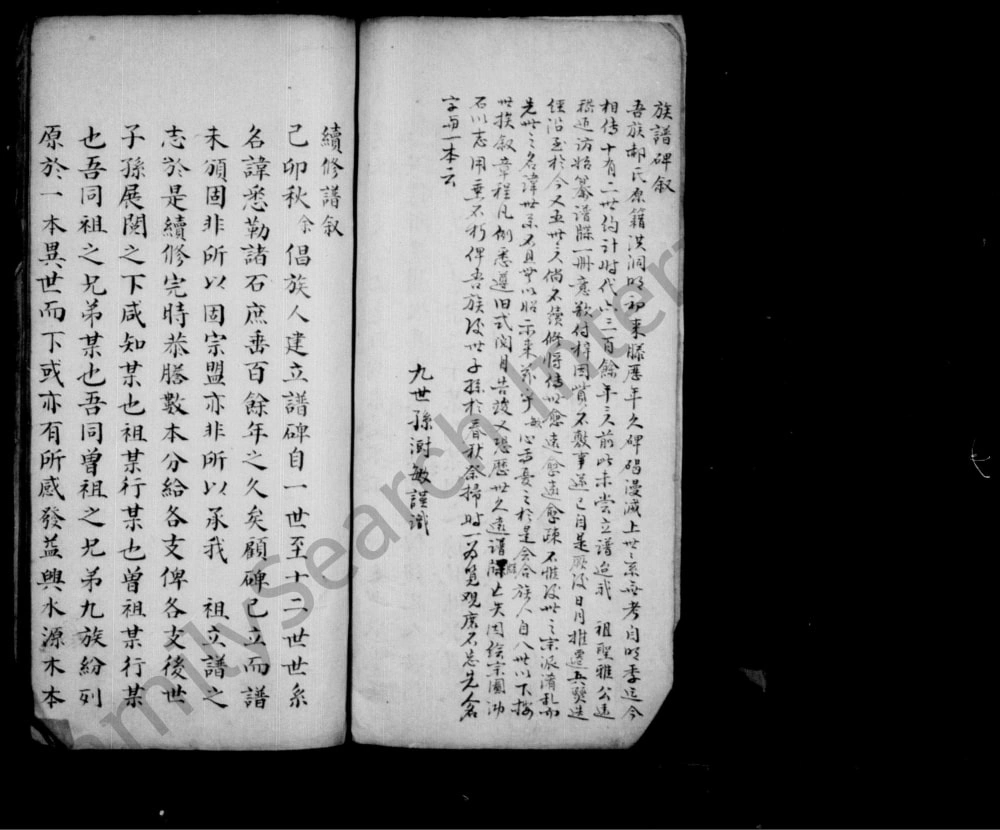 族譜碑叙
吾族郝氏原籍洪洞明初來滕歷年久碑碣漫滅上世之系無考自明季迄今
相传十有二世約计时代六三百餘年之久前此未尝立譜迨我 祖聖雅公遠
稽近访始纂譜牒一冊意欲付梓因貲不敷事遂已自是厥後日月推遷兵燹迭
經沿至於今又五世之久倘不續修將传以愈遠愈遠愈疎不惟後世之宗派淆乱而
先世之名諱世系不且無以昭示来兹乎敏心焉憂之於是会合族人自八世以下按
世挨叙章程凡例悉遵旧式閱月告竣又恐歷世久遠譜牒亡失因绘宗圖泐
石以志用垂不朽俾吾族後世子孫於春秋祭掃时一为覽观庶不忘先人名
字与一本云
九世孫澍敏謹識
續修譜叙
己卯秋余倡族人建立譜碑自一世至十二世世系
名諱悉勒諸石庶垂百餘年之久矣顧碑已立而譜
未頒固非所以固宗盟亦非所以承我 祖立譜之
志於是續修完時恭謄數本分給各支俾各支後世
子孫展閱之下咸知某也祖某行某也曾祖某行某
也吾同祖之兄弟某也吾同曾祖之兄弟九族紛列
原於一本異世而下或亦有所感發益興水源木本
FamilySearch Inter